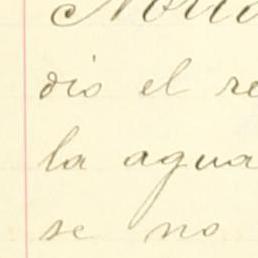 dio el re
la agua
se no